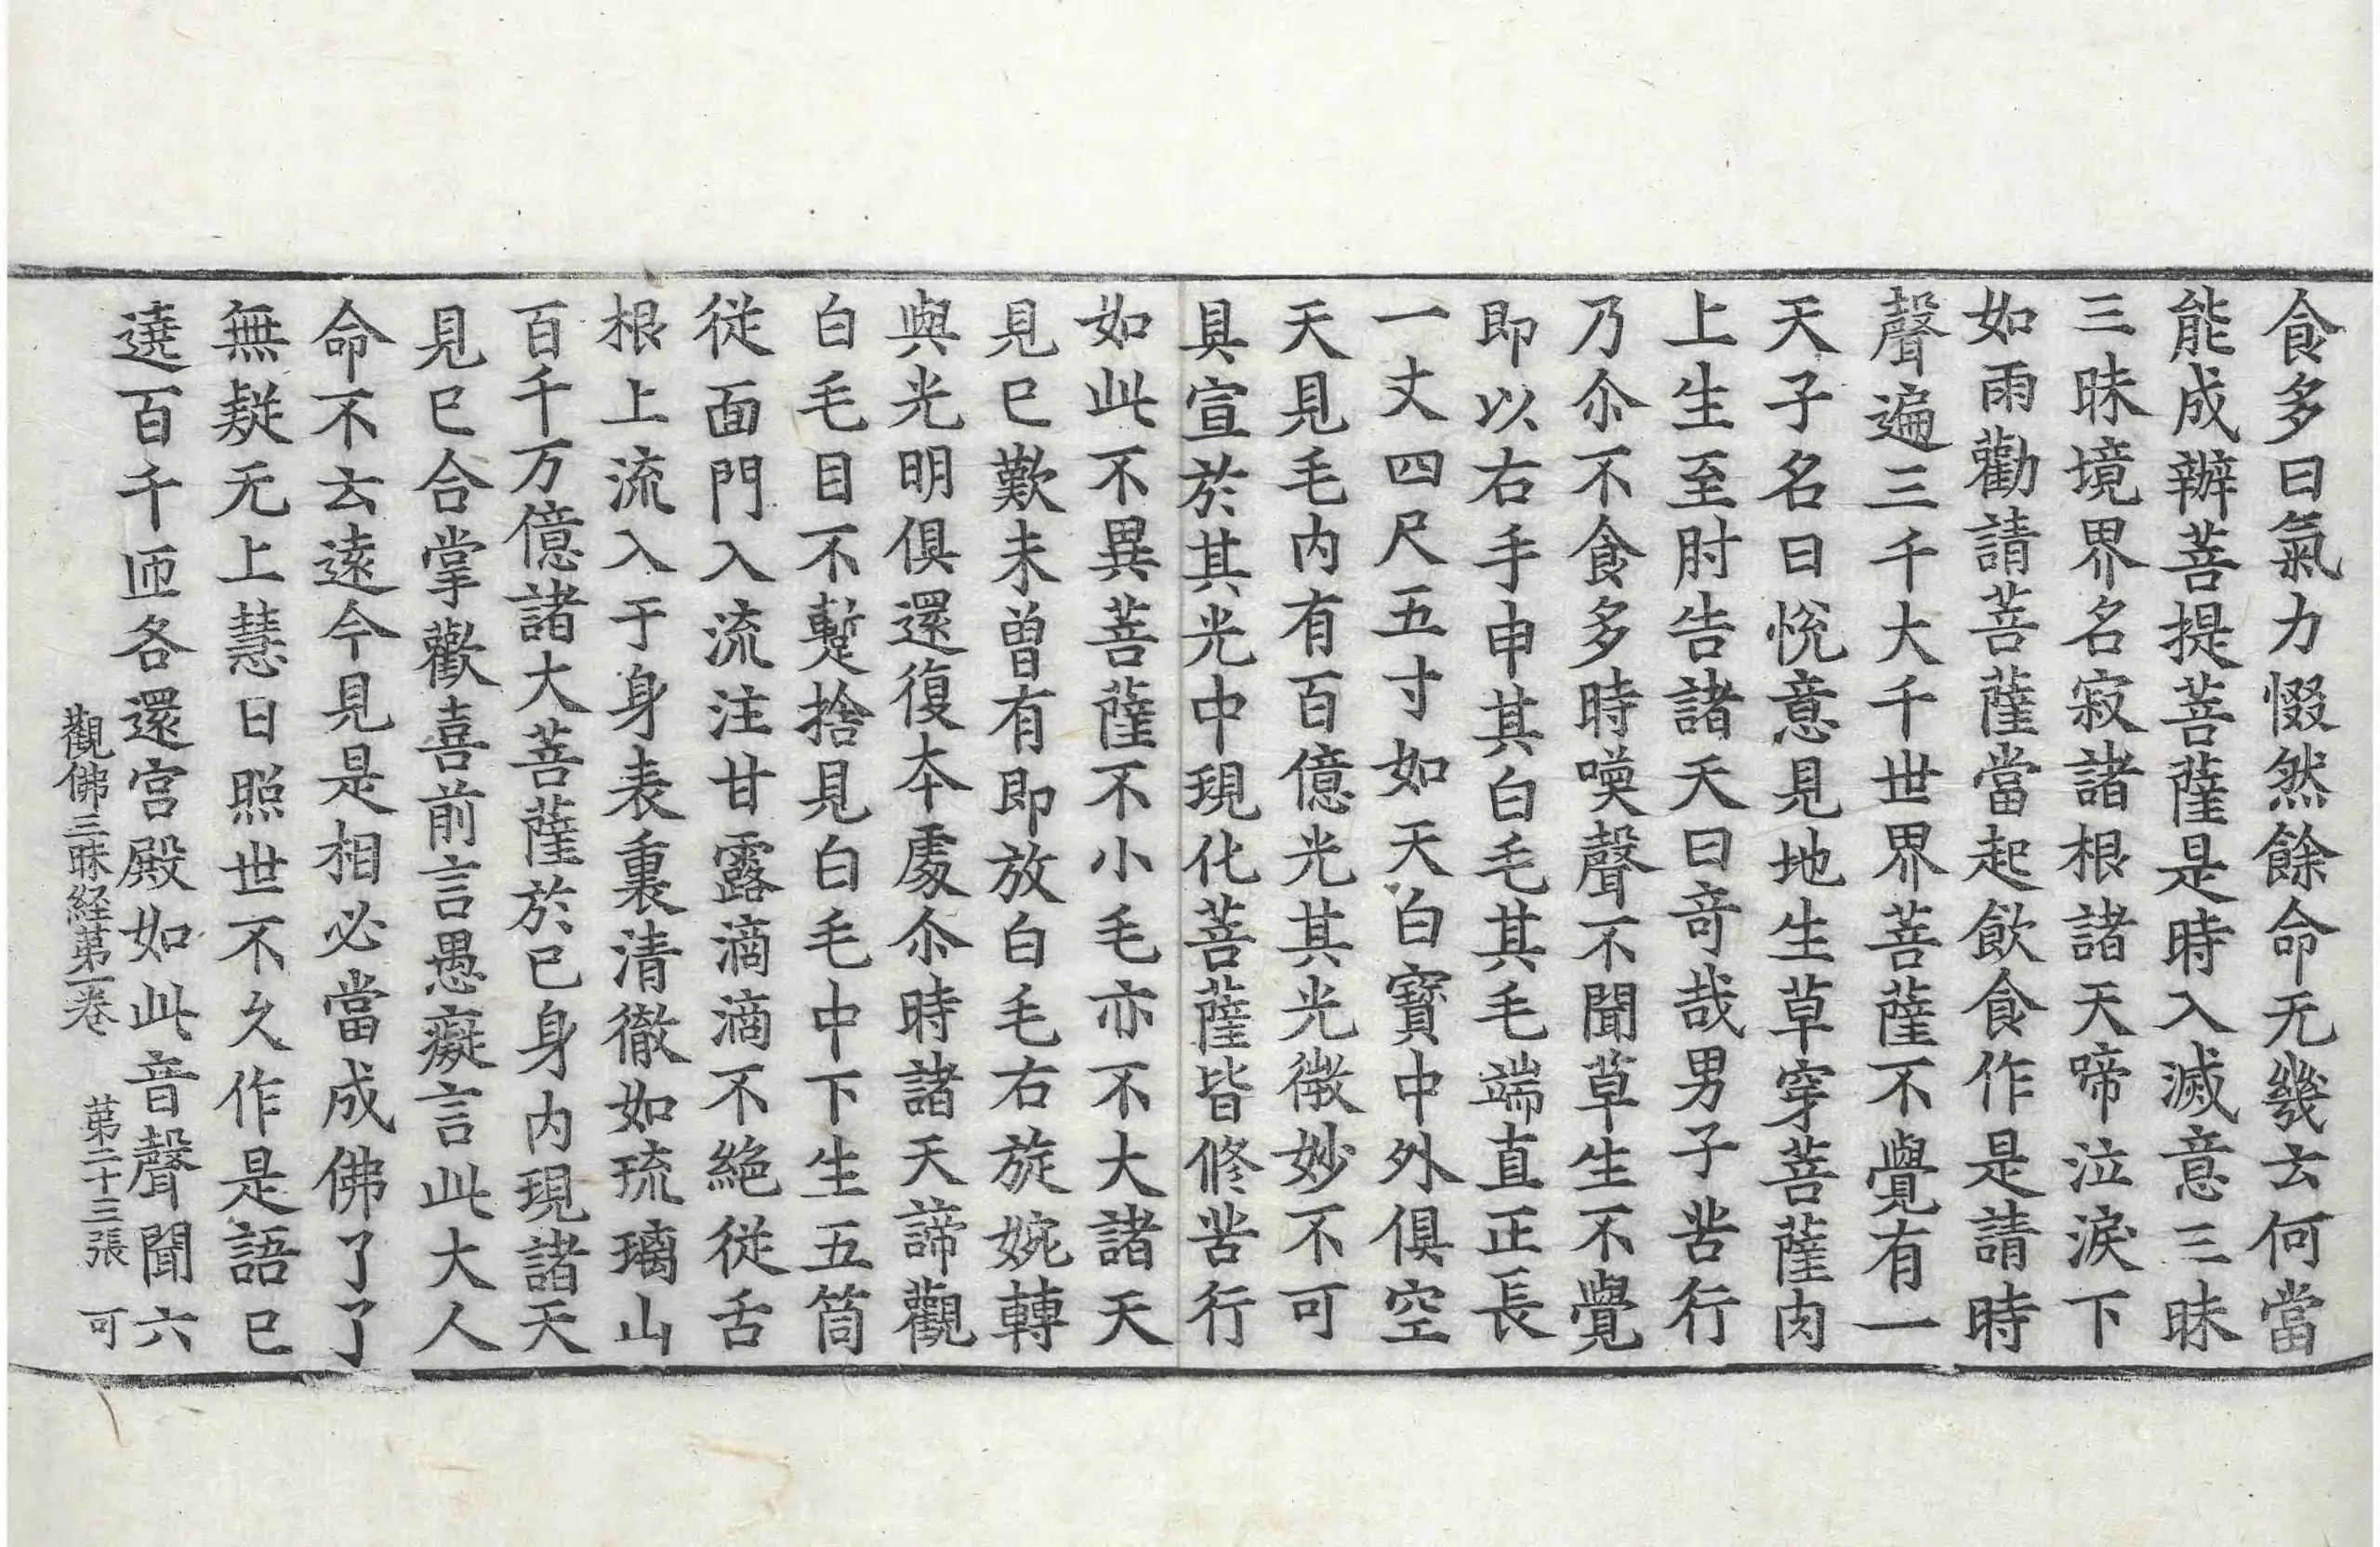 食多曰氣力惙然餘命无幾云何當
能成辦菩提菩薩是時入滅意三昧
三昧境界名寂諸根諸天啼泣淚下
如雨勸請菩薩當起飲食作是請時
聲遍三千大千世界菩薩不覺有一
天子名曰悅意見地生草穿菩薩肉
上生至肘告諸天曰奇哉男子苦行
乃尒不食多時喚聲不聞草生不覺
即以右手申其白毛其毛端直正長
一丈四尺五寸如天白寶中外俱空
天見毛內有百億光其光微妙不可
具宣於其光中現化菩薩皆修苦行
如此不異菩薩不小毛亦不大諸天
見已歎未曾有即放白毛右旋婉轉
與光明俱還復本處尒時諸天諦觀
白毛目不暫捨見白毛中下生五筒
從面門入流注甘露滴滴不絶從舌
根上流入于身表裏清徹如琉璃山
百千万億諸大菩薩於己身內現諸天
見已合掌歡喜前言愚癡言此大人
命不云遠今見是相必當成佛了了
無疑无上慧日照世不久作是語已
遶百千匝各還宮殿如此音聲聞六
觀佛三昧経第一卷 第二十三張 可